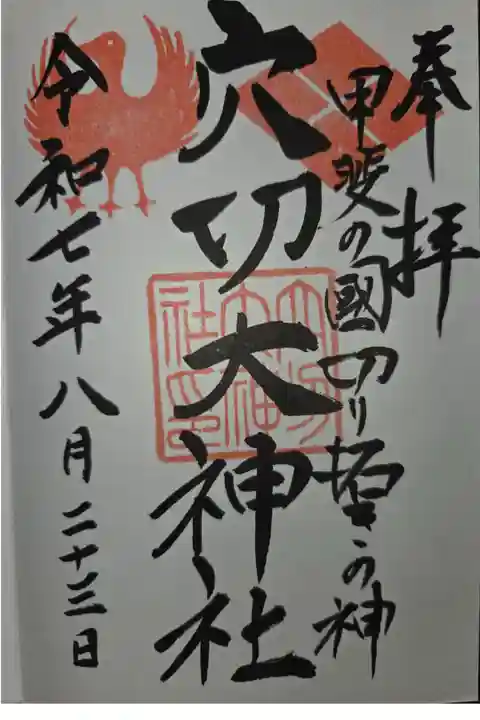 奉拝
甲斐の國切り拓きの神
穴切大神社
令和七年八月二十三日